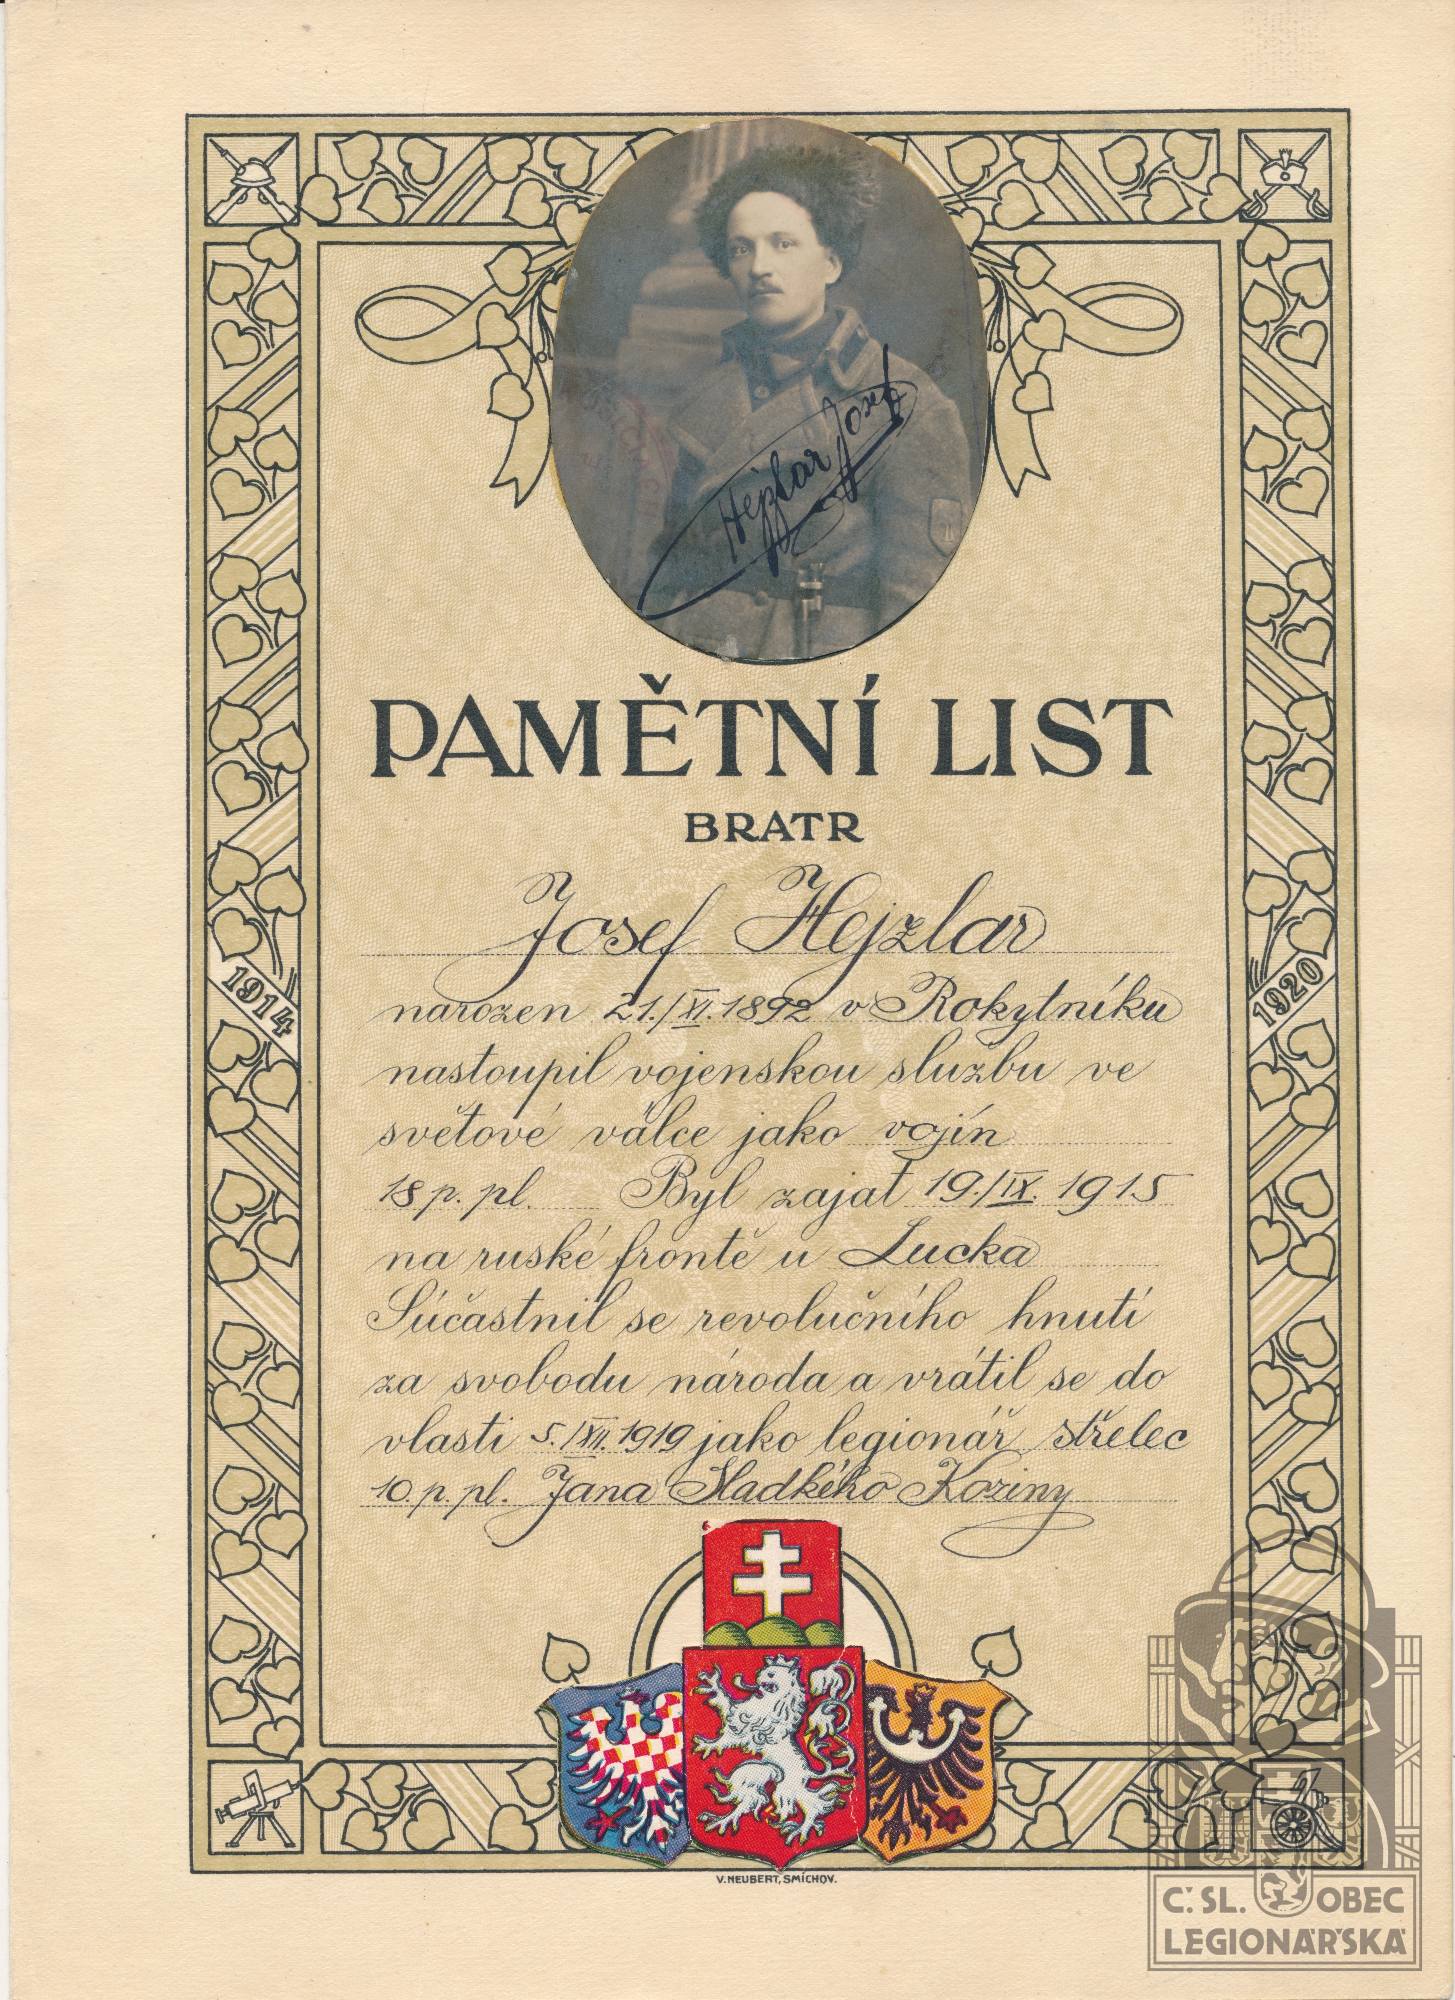 Hejzlar Josef
PAMĚTNÍ LIST
BRATR
Josef Hejzlar
narozen 21./XI. 1892 v Rokytníku
nastoupil vojenskou službu ve
světové válce jako vojín
18 p. pl. Byl zajat 19./IX. 1915
na ruské frontě u Lucka
Súčastnil se revolučního hnutí
za svobodu národa a vrátil se do
vlasti 5./XII. 1919 jako legionář střelec
10. p. pl. Jana Sladkého Koziny
1914
1920
V. NEUBERT, SMÍCHOV.
Č. SL. OBEC
LEGIONÁŘSKÁ